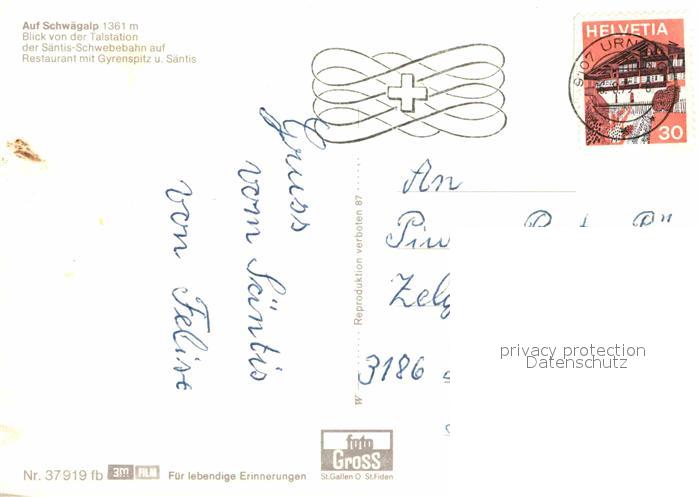 Auf Schwägalp 1361 m
Blick von der Talstation
der Säntis-Schwebebahn auf
Restaurant mit Gyrenspitz u. Säntis
HELVETIA
30
9107 URN
Gruss
vom Säntis
von Felix
Reproduktion verboten 87
An
3186
privacy protection
Datenschutz
foto
GROSS
St. Gallen O St. Fiden
Nr. 37919 fb 3m FILM Für lebendige Erinnerungen